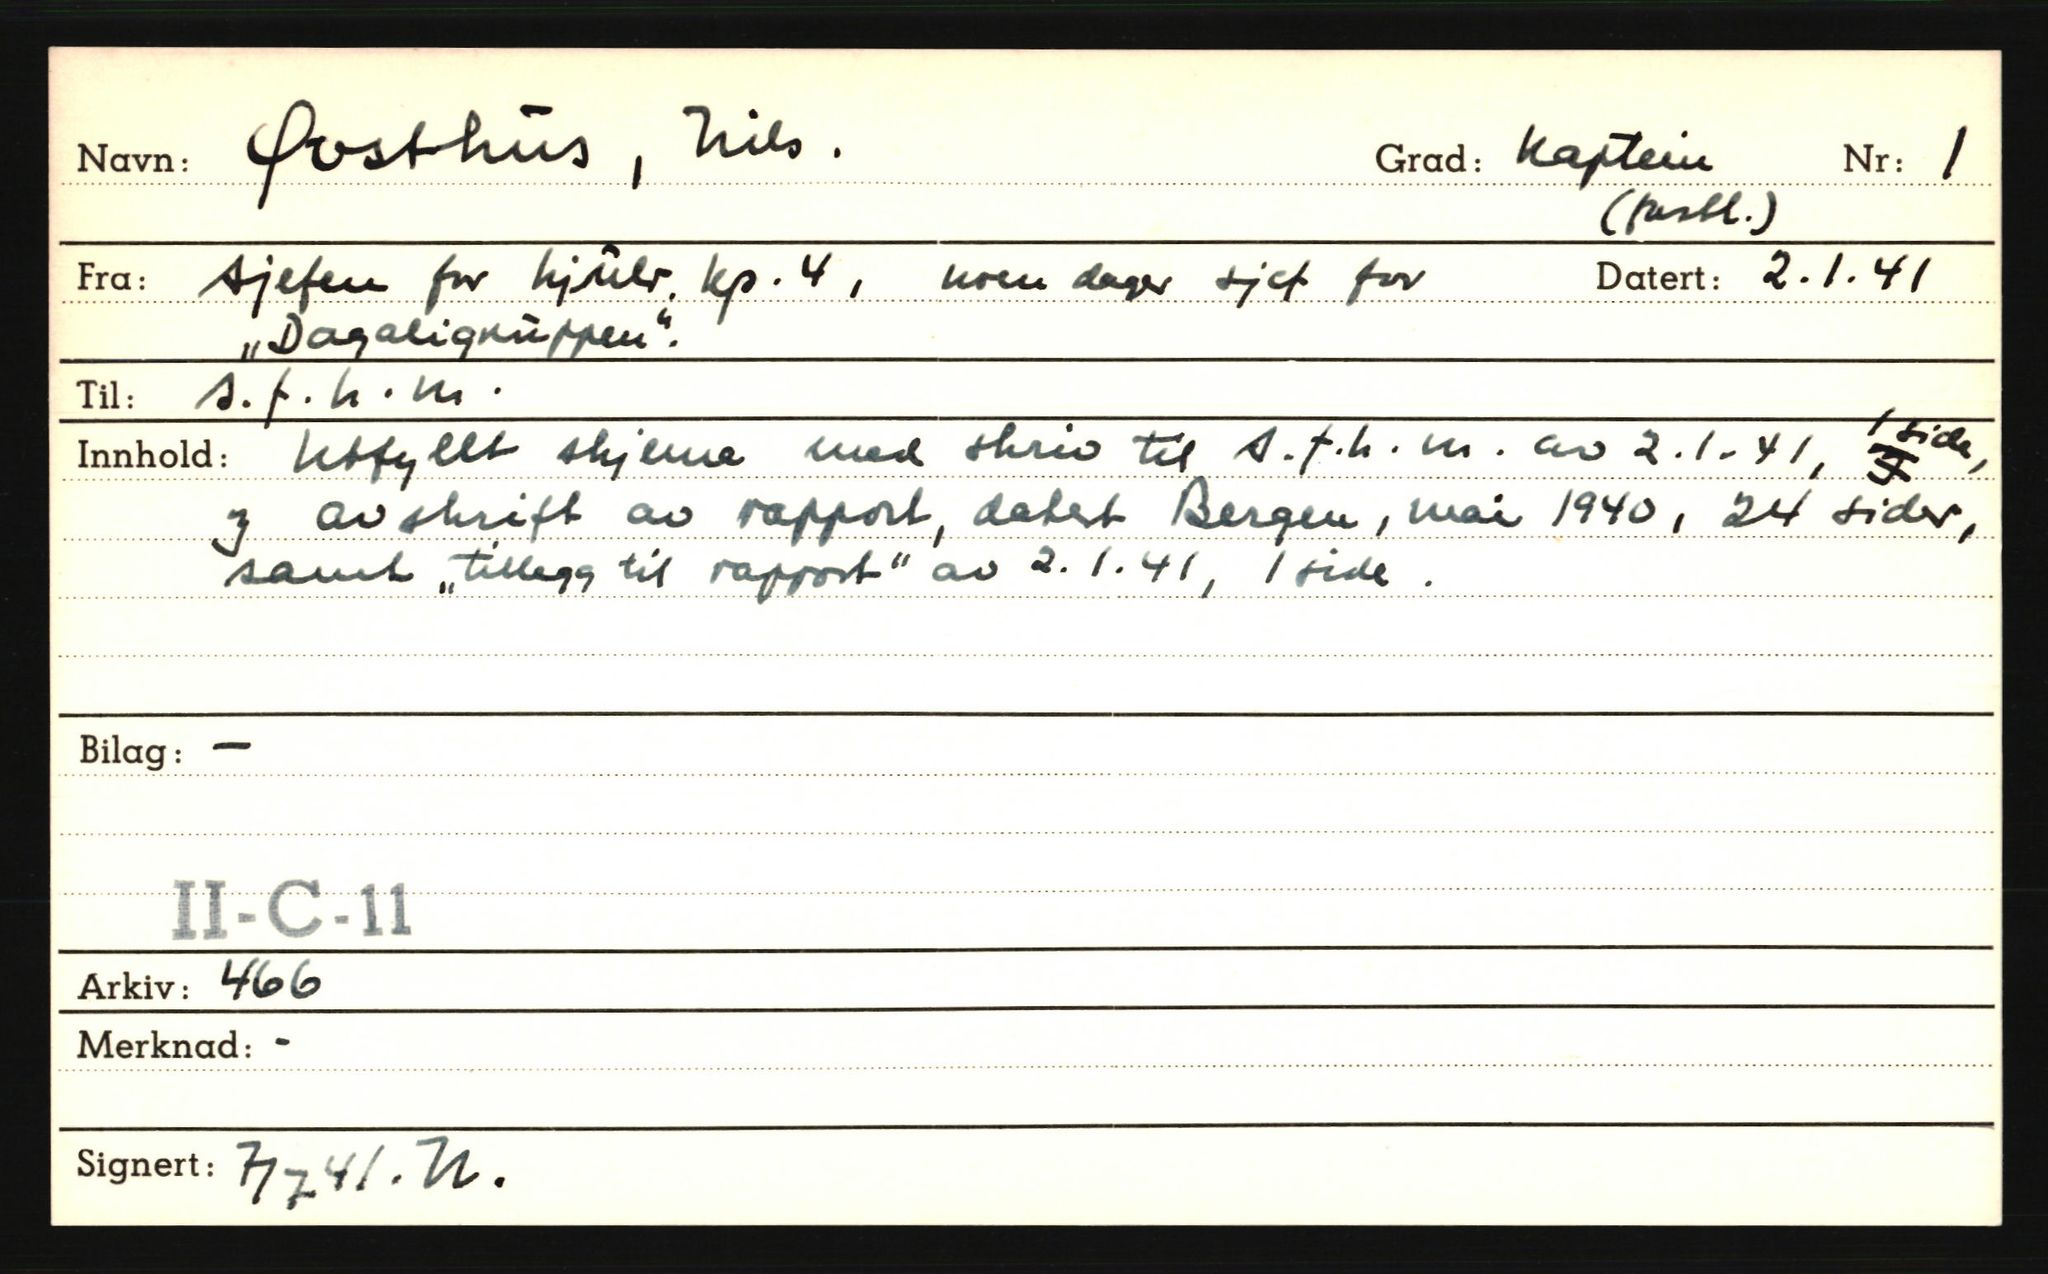 Navn: Øvsthus, Nils. Grad: Kaptein Nr: 1
Fra: Sjefen for hjulr. kp. 4, noen dager sjef for Datert: 2.1.41
"Dagaligruppen".
Til: S.f.h.m.
Innhold: Utfyllt skjema med skriv til S.f.h.m. av 2.1.41, 1 side,
og avskrift av rapport, datert Bergen, mai 1940, 24 sider,
samt "tillegg til rapport" av 2.1.41, 1 side.
Bilag: –
II-C-11
Arkiv: 466
Merknad: -
Signert: 7/7 41. N.